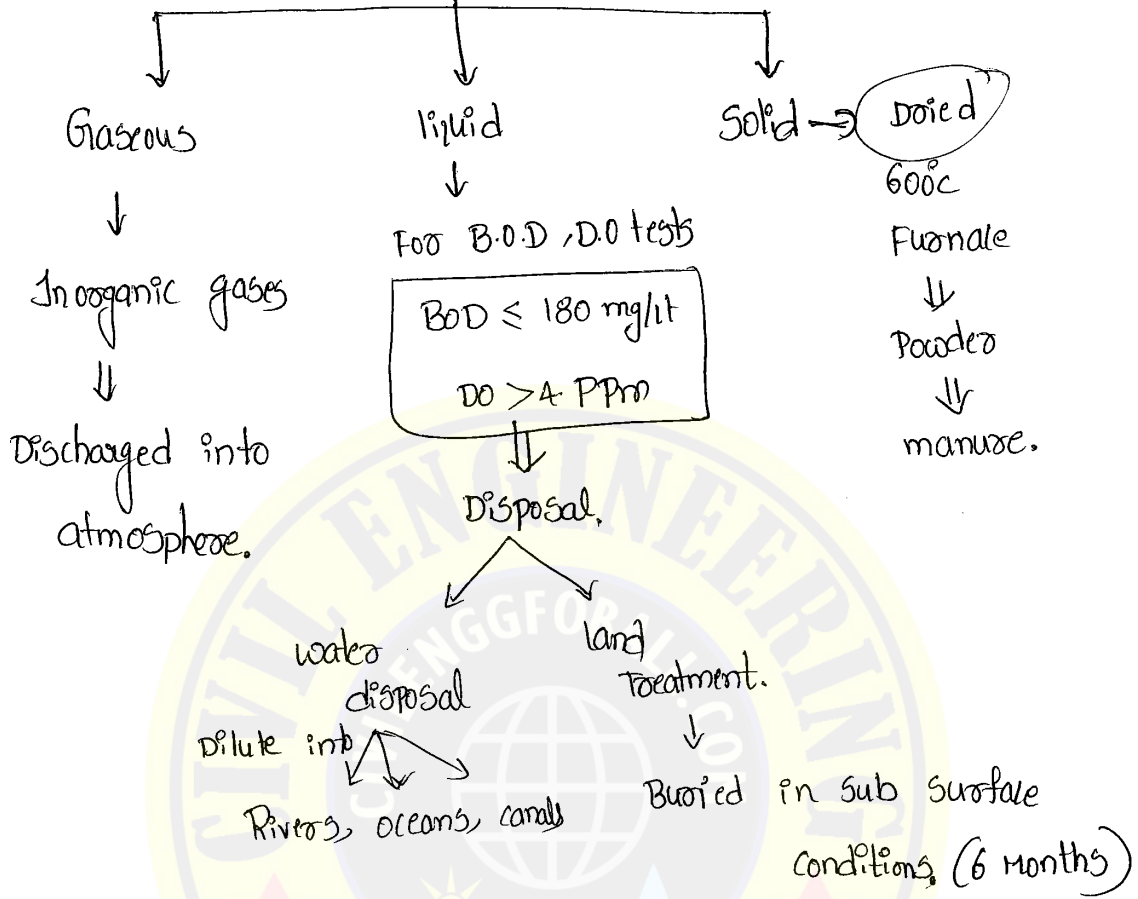 Gaseous
Inorganic gases
Discharged into
atmosphere.
liquid
For B.O.D, D.O tests
BOD ≤ 180 mg/lt
DO > 4 PPm
Disposal.
water
disposal
Dilute into
Rivers, oceans, canals
land
Treatment.
Buried in sub surface
conditions. (6 Months)
Solid → Dried
600°c
Furnace
Powder
manure.
CIVIL ENGINEERING
CIVILENGGFORALL.COM